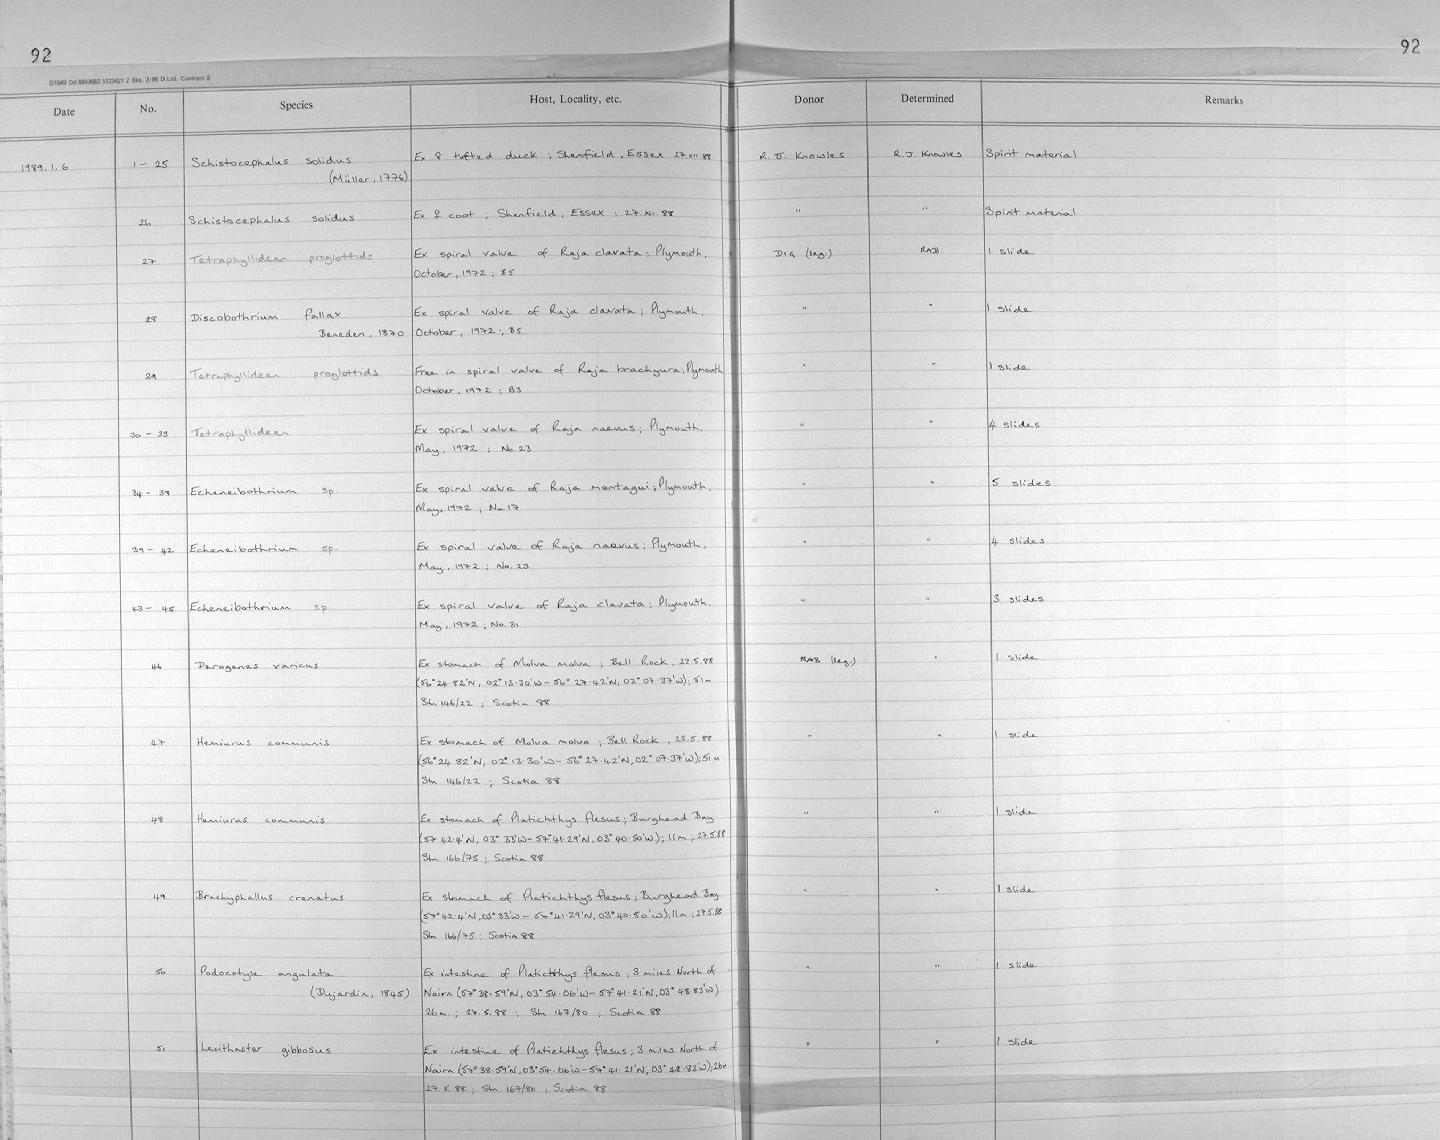 92
92
D1949 Dd.8843682 5123421 2 Bks. 2/86 D.Ltd. Contract 8
Date No. Species Host, Locality, etc. Donor Determined Remarks
1989.1.6 1-25 Schistocephalus solidus Ex ♀ tufted duck ; Shenfield, Essex 27.xii.88 R.J. Knowles R.J. Knowles Spirit material
(Müller, 1776)
26 Schistocephalus solidus Ex ♀ coot ; Shenfield, Essex ; 27.xii.88 " " Spirit material
27 Tetraphyllidean proglottids Ex spiral valve of Raja clavata ; Plymouth, DIG (leg.) RAB 1 slide
October, 1972 ; 85
28 Discobothrium fallax Ex spiral valve of Raja clavata ; Plymouth, " " 1 slide
Beneden, 1870 October, 1972 ; 85
29 Tetraphyllidean proglottids Free in spiral valve of Raja brachyura ; Plymouth " " 1 slide
October, 1972 ; 83
30-33 Tetraphyllidean Ex spiral valve of Raja naevus ; Plymouth, " " 4 slides
May, 1972 ; No. 23
34-38 Echeneibothrium sp. Ex spiral valve of Raja montagui ; Plymouth, " " 5 slides
May, 1972 ; No. 17
39-42 Echeneibothrium sp. Ex spiral valve of Raja naevus ; Plymouth, " " 4 slides
May, 1972 ; No. 23
43-45 Echeneibothrium sp. Ex spiral valve of Raja clavata ; Plymouth, " " 3 slides
May, 1972 ; No. 31
46 Derogenes varicus Ex stomach of Molva molva ; Bell Rock, 22.5.88 RAB (leg.) " 1 slide
(56°24.82'N, 02°13.30'W - 56°27.42'N, 02°07.37'W); 51m
Stn 146/22 ; Scotia 88
47 Hemiurus communis Ex stomach of Molva molva ; Bell Rock, 22.5.88 " " 1 slide
(56°24.82'N, 02°13.30'W - 56°27.42'N, 02°07.37'W); 51m
Stn 146/22 ; Scotia 88
48 Hemiurus communis Ex stomach of Platichthys flesus ; Burghead Bay " " 1 slide
(57°42.4'N, 03°33'W - 57°41.29'N, 03°40.50'W); 11m ; 27.5.88
Stn 166/75 ; Scotia 88
49 Brachyphallus crenatus Ex stomach of Platichthys flesus ; Burghead Bay " " 1 slide
(57°42.4'N, 03°33'W - 57°41.29'N, 03°40.50'W); 11m ; 27.5.88
Stn 166/75 ; Scotia 88
50 Podocotyle angulata Ex intestine of Platichthys flesus ; 3 miles North of " " 1 slide
(Dujardin, 1845) Nairn (57°38.59'N, 03°54.06'W - 57°41.21'N, 03°48.83'W)
26m. ; 27.5.88 ; Stn 167/80 ; Scotia 88
51 Lecithaster gibbosus Ex intestine of Platichthys flesus ; 3 miles North of " " 1 slide
Nairn (57°38.59'N, 03°54.06'W - 57°41.21'N, 03°48.83'W); 26m
27.5.88 ; Stn 167/80 ; Scotia 88